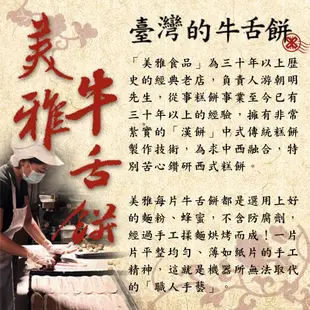 美雅牛舌餅
臺灣的牛舌餅
「美雅食品」為三十年以上歷
史的經典老店，負責人游朝明
先生，從事糕餅事業至今已有
三十年以上的經驗，擁有非常
紮實的「漢餅」中式傳統糕餅
製作技術，為求中西融合，特
別苦心鑽研西式糕餅。
美雅每片牛舌餅都是選用上好
的麵粉、蜂蜜，不含防腐劑，
經過手工揉麵烘烤而成！一片
片平整均勻、薄如紙片的手工
精神，這就是機器所無法取代
的「職人手藝」。